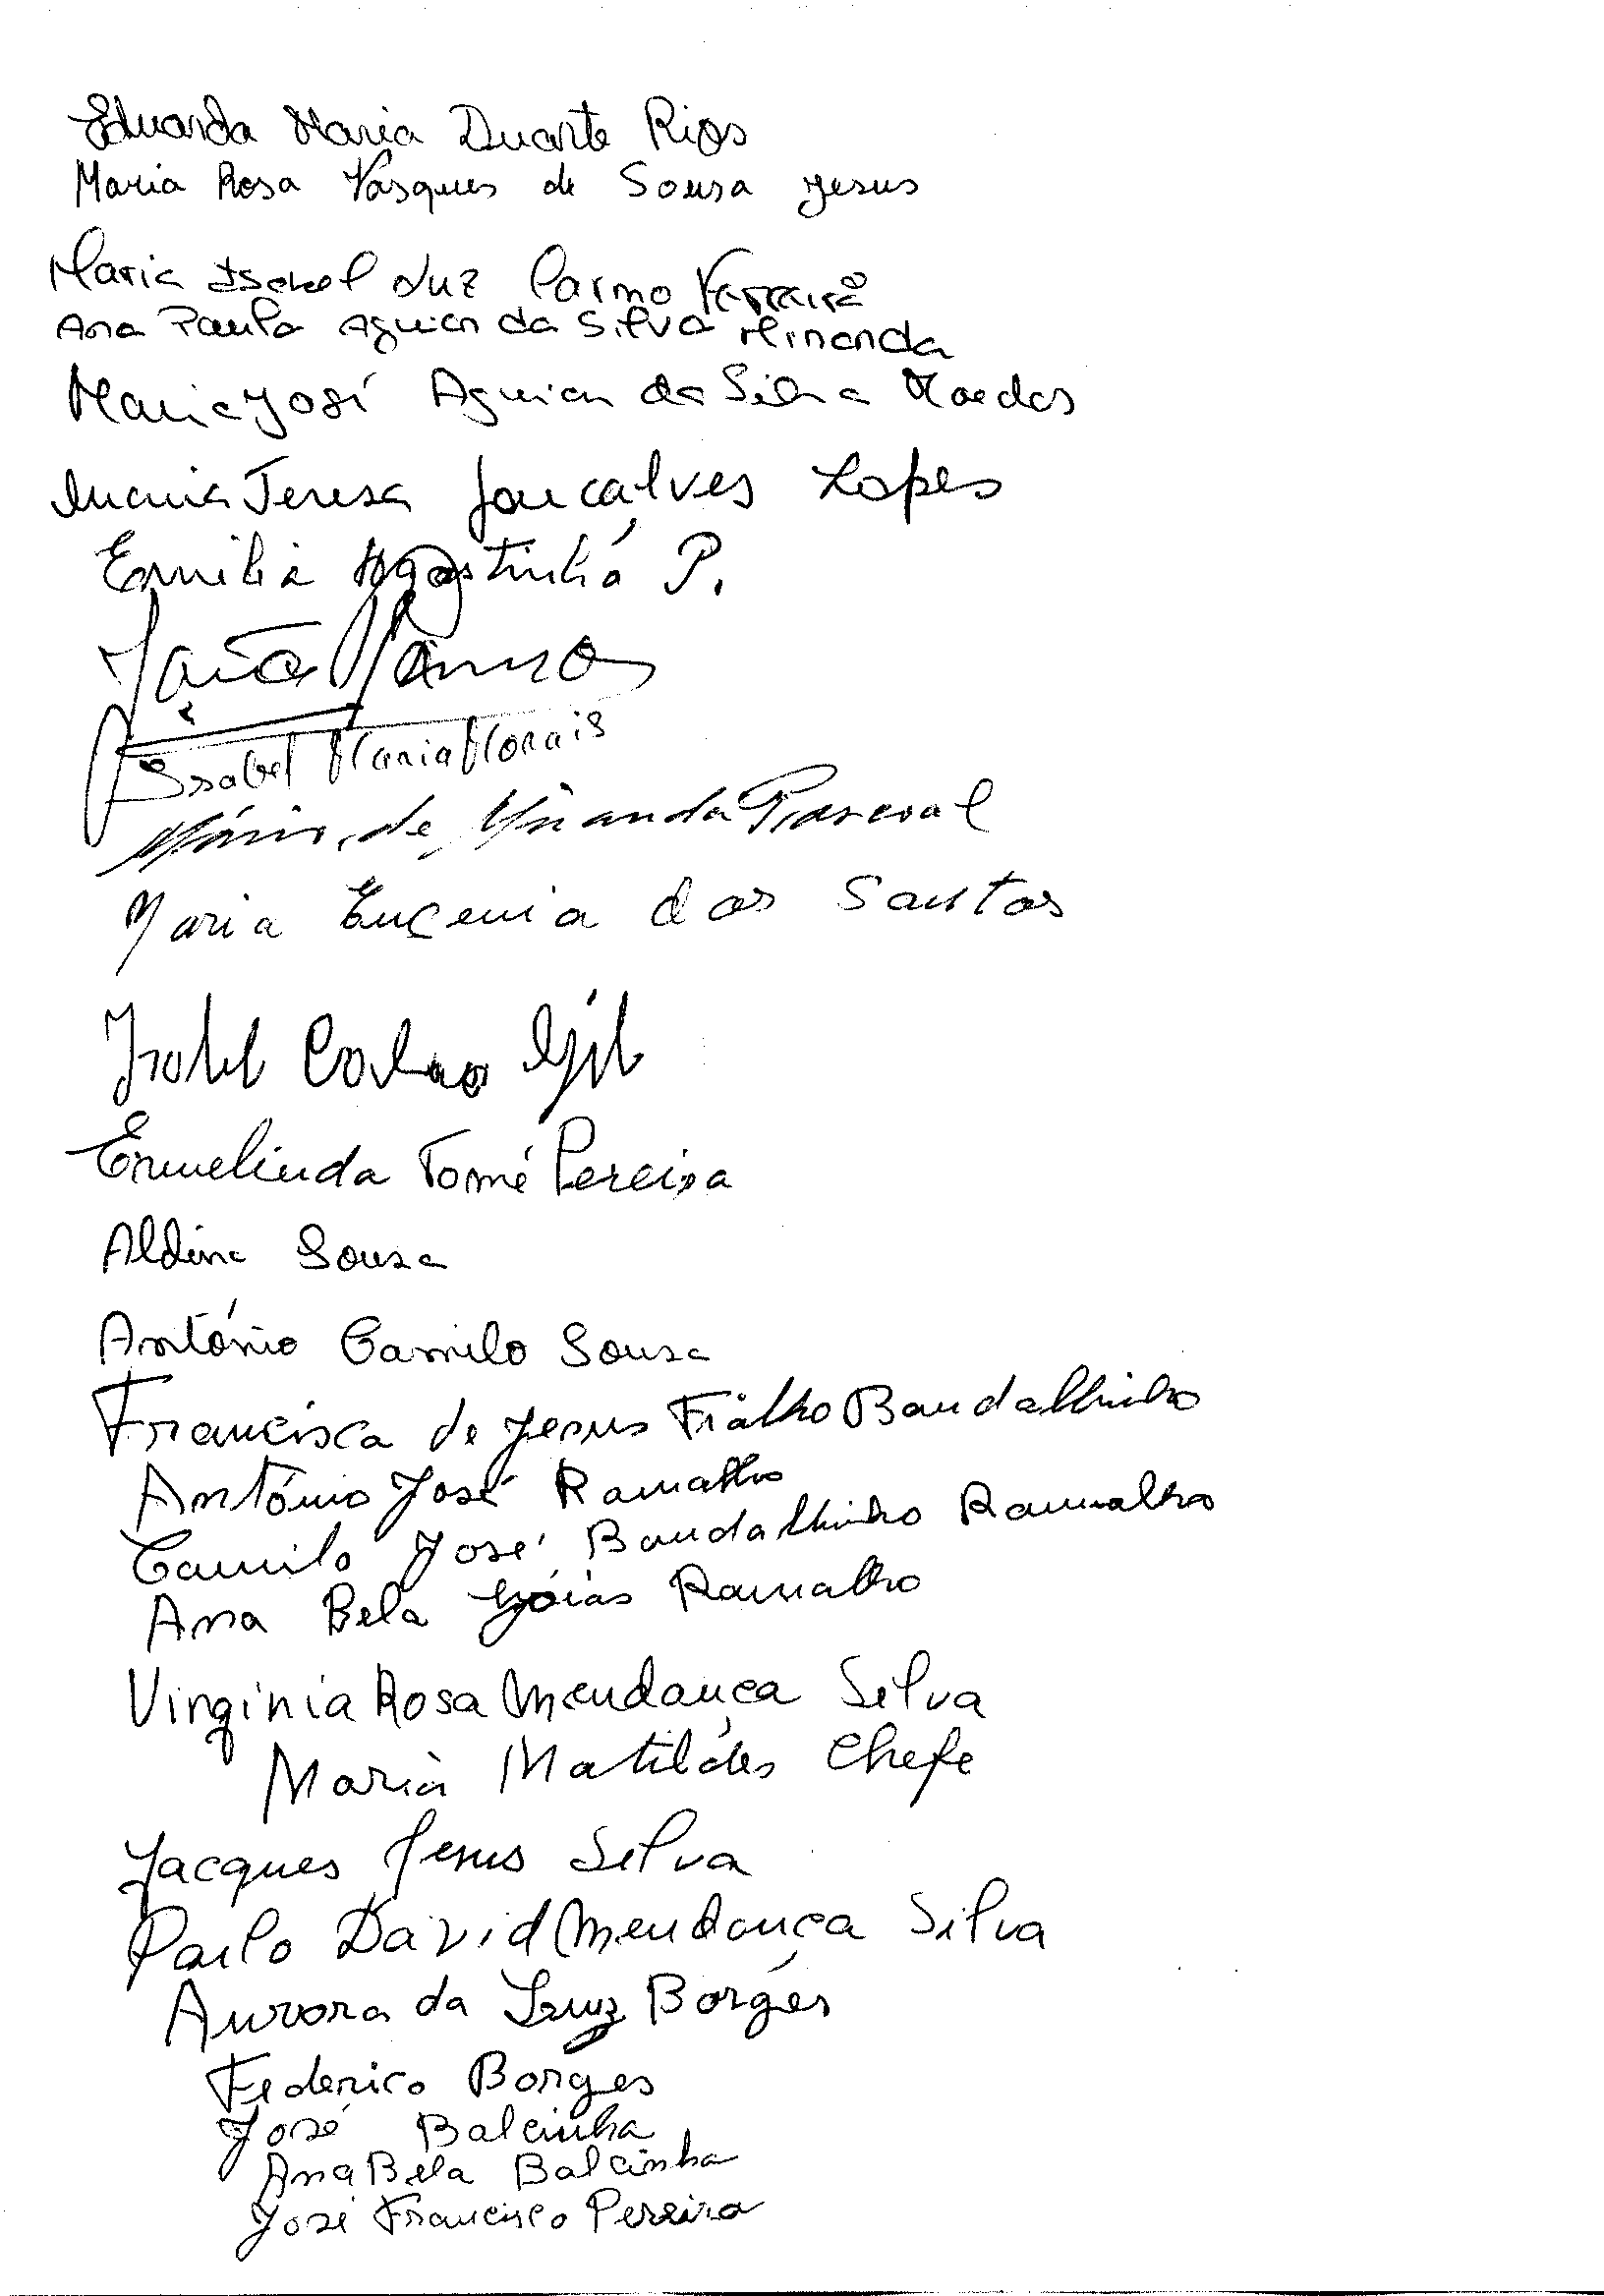 Eduarda Maria Duarte Rios
Maria Rosa Vasques de Sousa Jesus
Maria Isabel Luz Carmo Ferreira
Ana Paula Aguiar da Silva Miranda
Maria José Aguiar da Silva Moedas
Maria Teresa Gonçalves Lopes
Emilia Agostinho P.
Isabel Maria Morais
Mário de Miranda
Maria Eugenia dos Santos
Isabel Gil
Ermelinda Tomé Pereira
Aldina Sousa
António Camilo Sousa
Francisca de Jesus Fialho Bandalhinho
António José Ramalho
Camilo José Bandalhinho Ramalho
Ana Bela Góias Ramalho
Virginia Rosa Mendança Silva
Maria Matildes Chefe
Jacques Jesus Silva
Paulo David Mendonça Silva
Aurora da Luz Borges
Federico Borges
José Balcinha
Ana Bela Balcinha
José Francisco Pereira